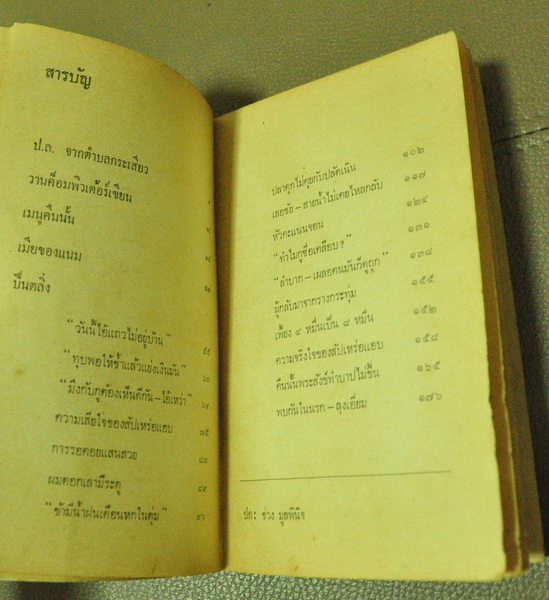 สารบัญ
ป.ล. จากตำบลกระเสียว
วานค็อมพิวเต้อร์เขียน
เมนูคืนนั้น
เมียของแนม
ปืนตลิ่ง
"วันนี้ไอ้แถวไม่อยู่บ้าน"
"ทุบพอให้ช้ำแล้วแย่งเงินมัน"
"มึงกับกูต้องเห็นดีกัน–ไอ้เหว่า"
ความเสียใจของสัปเหร่อแอบ ๗๕
การรอคอยแสนสวย ๘๓
ผมดอกเลามีระดู ๘๙
"ข้ามีน้ำฝนเดือนหกในตุ่ม" ๙๖
ปลาดุกไม่คุยกับปลัดเนิน ๑๐๒
เลอชัย–สายน้ำไม่เคยไหลกลับ ๑๑๗
หัวคะแนนจอน ๑๒๔
"ทำไมกูชื่อเคลือบ?" ๑๓๑
"ลำบาก–เผลอคนมันก็ดูถูก" ๑๓๘
ผู้กลับมาจากรางกระทุ่ม ๑๔๕
เพียง ๔ หมื่นเป็น ๘ หมื่น ๑๕๒
ความจริงใจของสัปเหร่อแอบ ๑๕๘
คืนนั้นพระสงฆ์ทำบาปไม่ขึ้น ๑๖๕
พบกันในนรก–ลุงเอี่ยม ๑๗๖
ปก: ช่วง มูลพินิจ